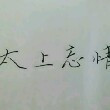 太上忘情